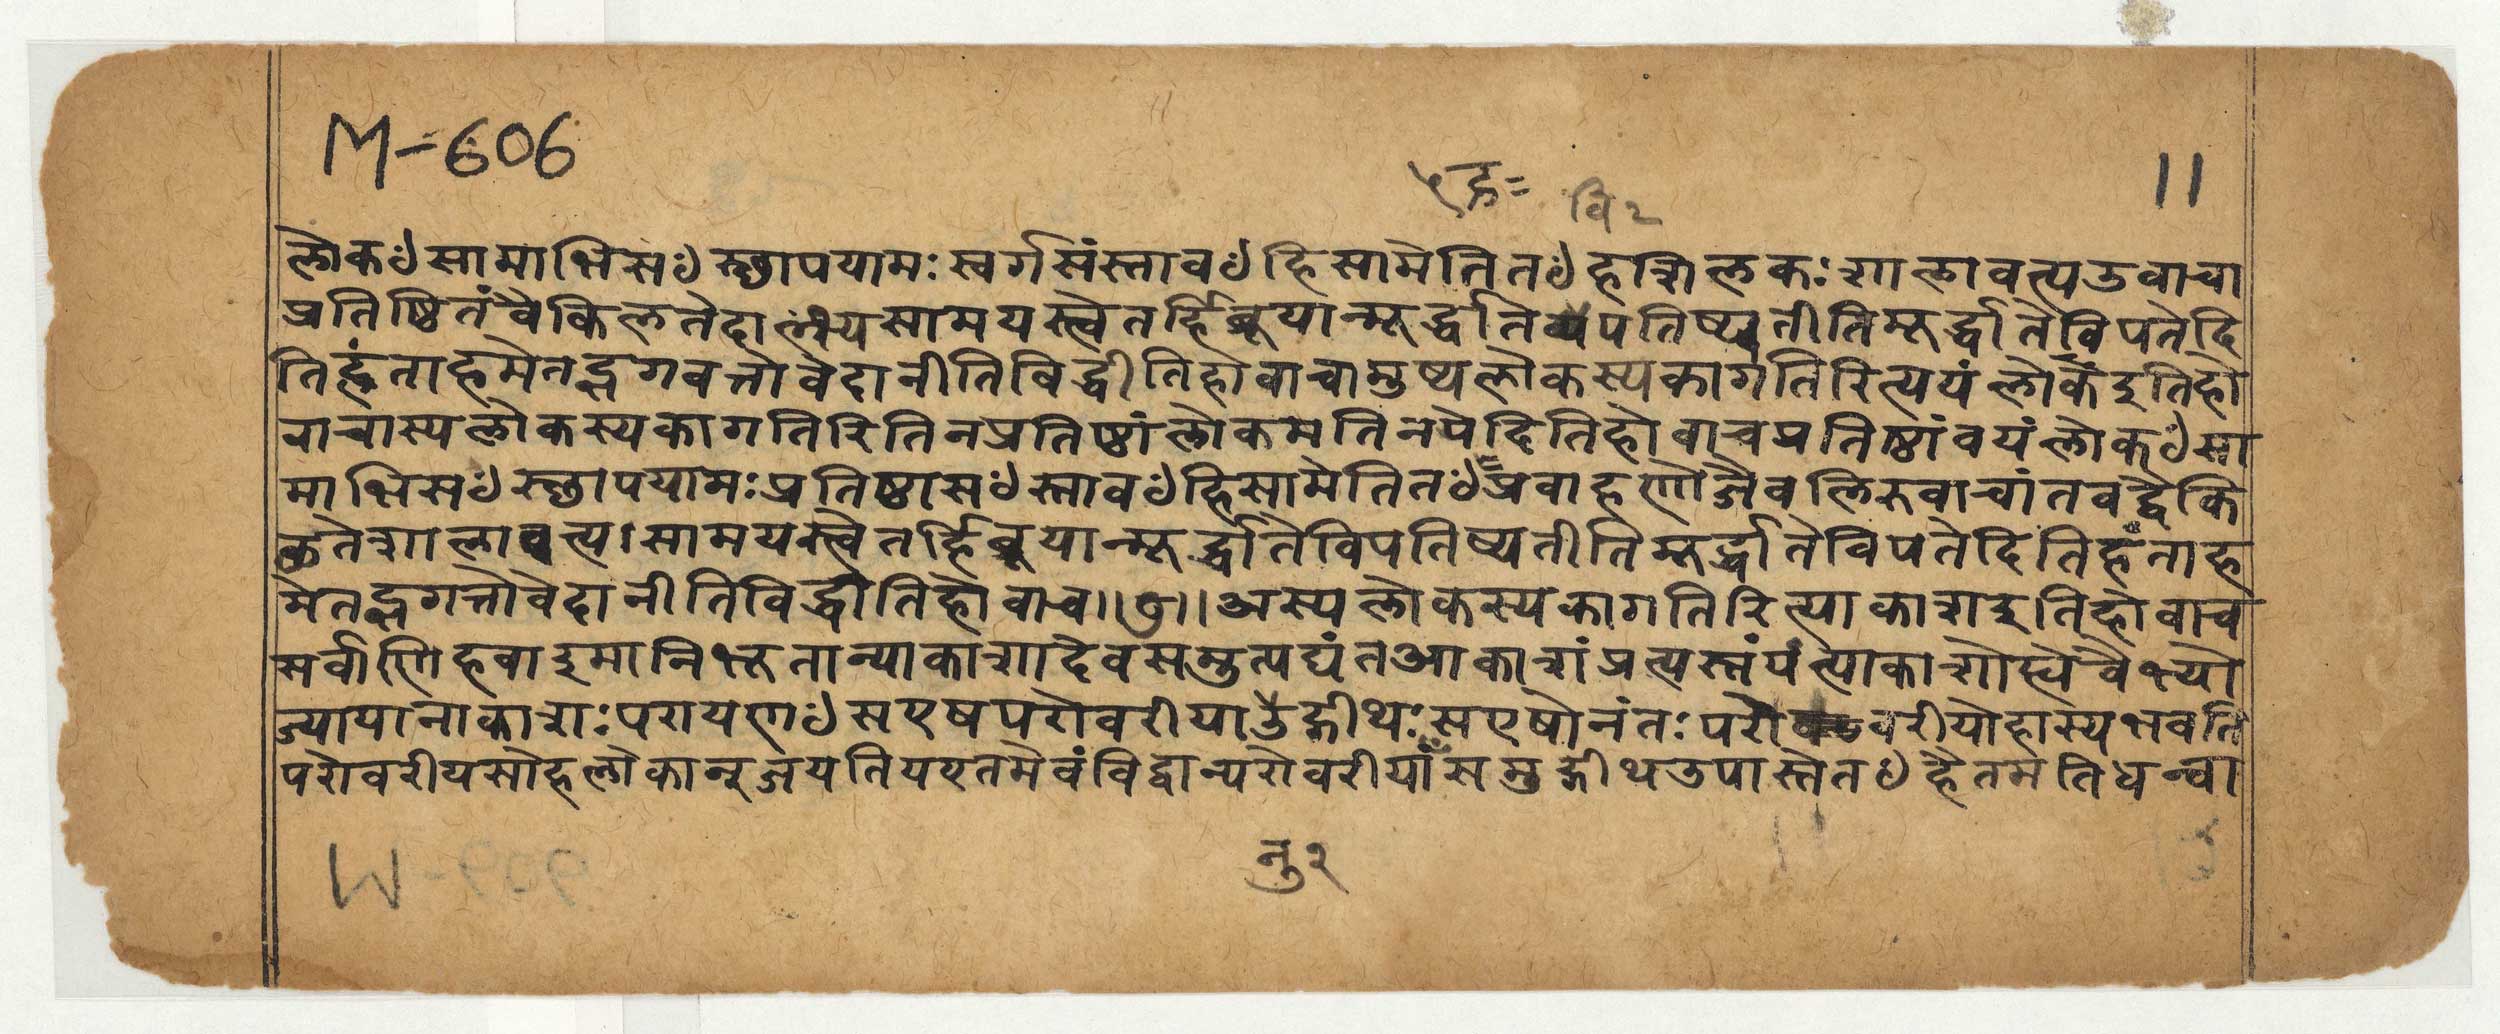 M-606
११
वि २
लोकꣳसामाभिसꣳस्थापयामः स्वर्गसंस्तावꣳहिसामेतितꣳहशिलकः शालावत्यउवाचा
प्रतिष्ठितंवैकिलतेदाल्भ्यसामयस्त्वेतर्हिब्रूयान्मूर्द्धातेव्यपतिष्यतीतिमूर्द्धातेविपतेदि
तिहंताहमेतद्भगवत्तोवेदानीतिविद्धीतिहोवाचामुष्यलोकस्यकागतिरित्ययंलोकइतिहो
वाचास्यलोकस्यकागतिरितिनप्रतिष्ठांलोकमतिनयेदितिहोवाचप्रतिष्ठांवयंलोकꣳसा
माभिसꣳस्थापयामः प्रतिष्ठासꣳस्तावꣳहिसामेतितꣳप्रवाहणोजैवलिरुवाचांतवद्वैकि
लतेशालावत्य।सामयस्त्वेतर्हिब्रूयान्मूर्द्धातेविपतिष्यतीतिमूर्द्धातेविपतेदितिहंताह
मेतद्भगत्तोवेदानीतिविद्धीतिहोवाच॥७॥अस्यलोकस्यकागतिरित्याकाशइतिहोवाच
सर्वाणिहवाइमानिभूतान्याकाशादेवसमुत्पद्यंतआकाशंप्रत्यस्तंयंत्याकाशोह्येवैभ्यो
ज्यायानाकाशः परायणꣳसएषपरोवरीयाउद्गीथः सएषोनंतः परोवरीयोहास्यभवति
परोवरीयसोहलोकान्जयतियएतमेवंविद्वान्परोवरीयाँसमुद्गीथउपास्तेतꣳहैतमतिधन्वा
नु२